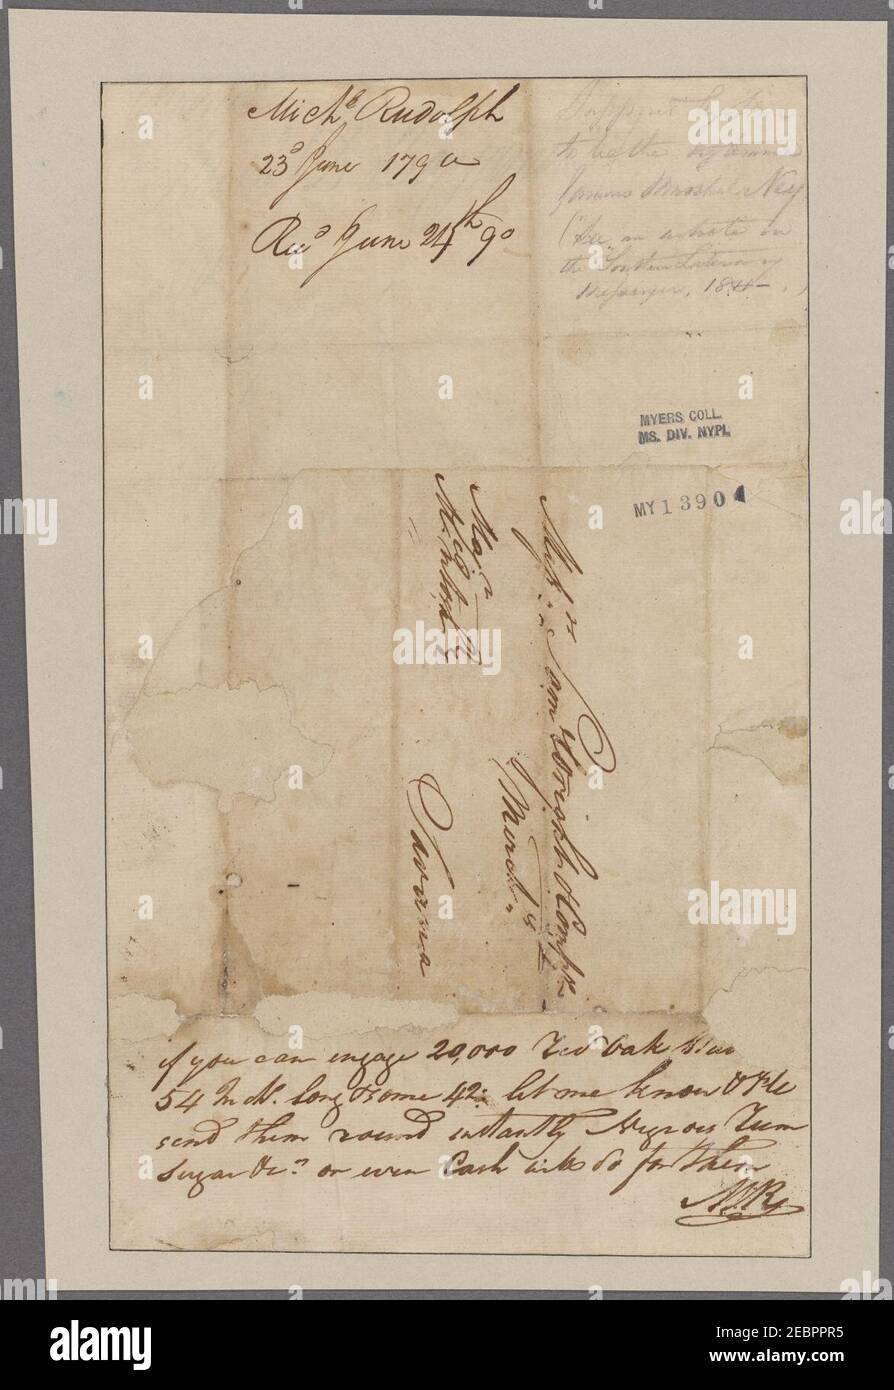 Michl Rudolph
23d June 1790
Recd June 24th 90
to be the
famous Marshal Ney
(See an article in
the Southern Literary
Messenger, 184
MYERS COLL.
MS. DIV. NYPL
MY 1390
Messrs Saml Wright & Compy
Merchts
Savana
if you can engage 20,000 Red Oak
54 Inch. long & some 42: let me know & I'le
send them round instantly Negroes Rum
Sugar &c. or even Cash will do for them
MR
alamy
Image ID: 2EBPPR5
www.alamy.com